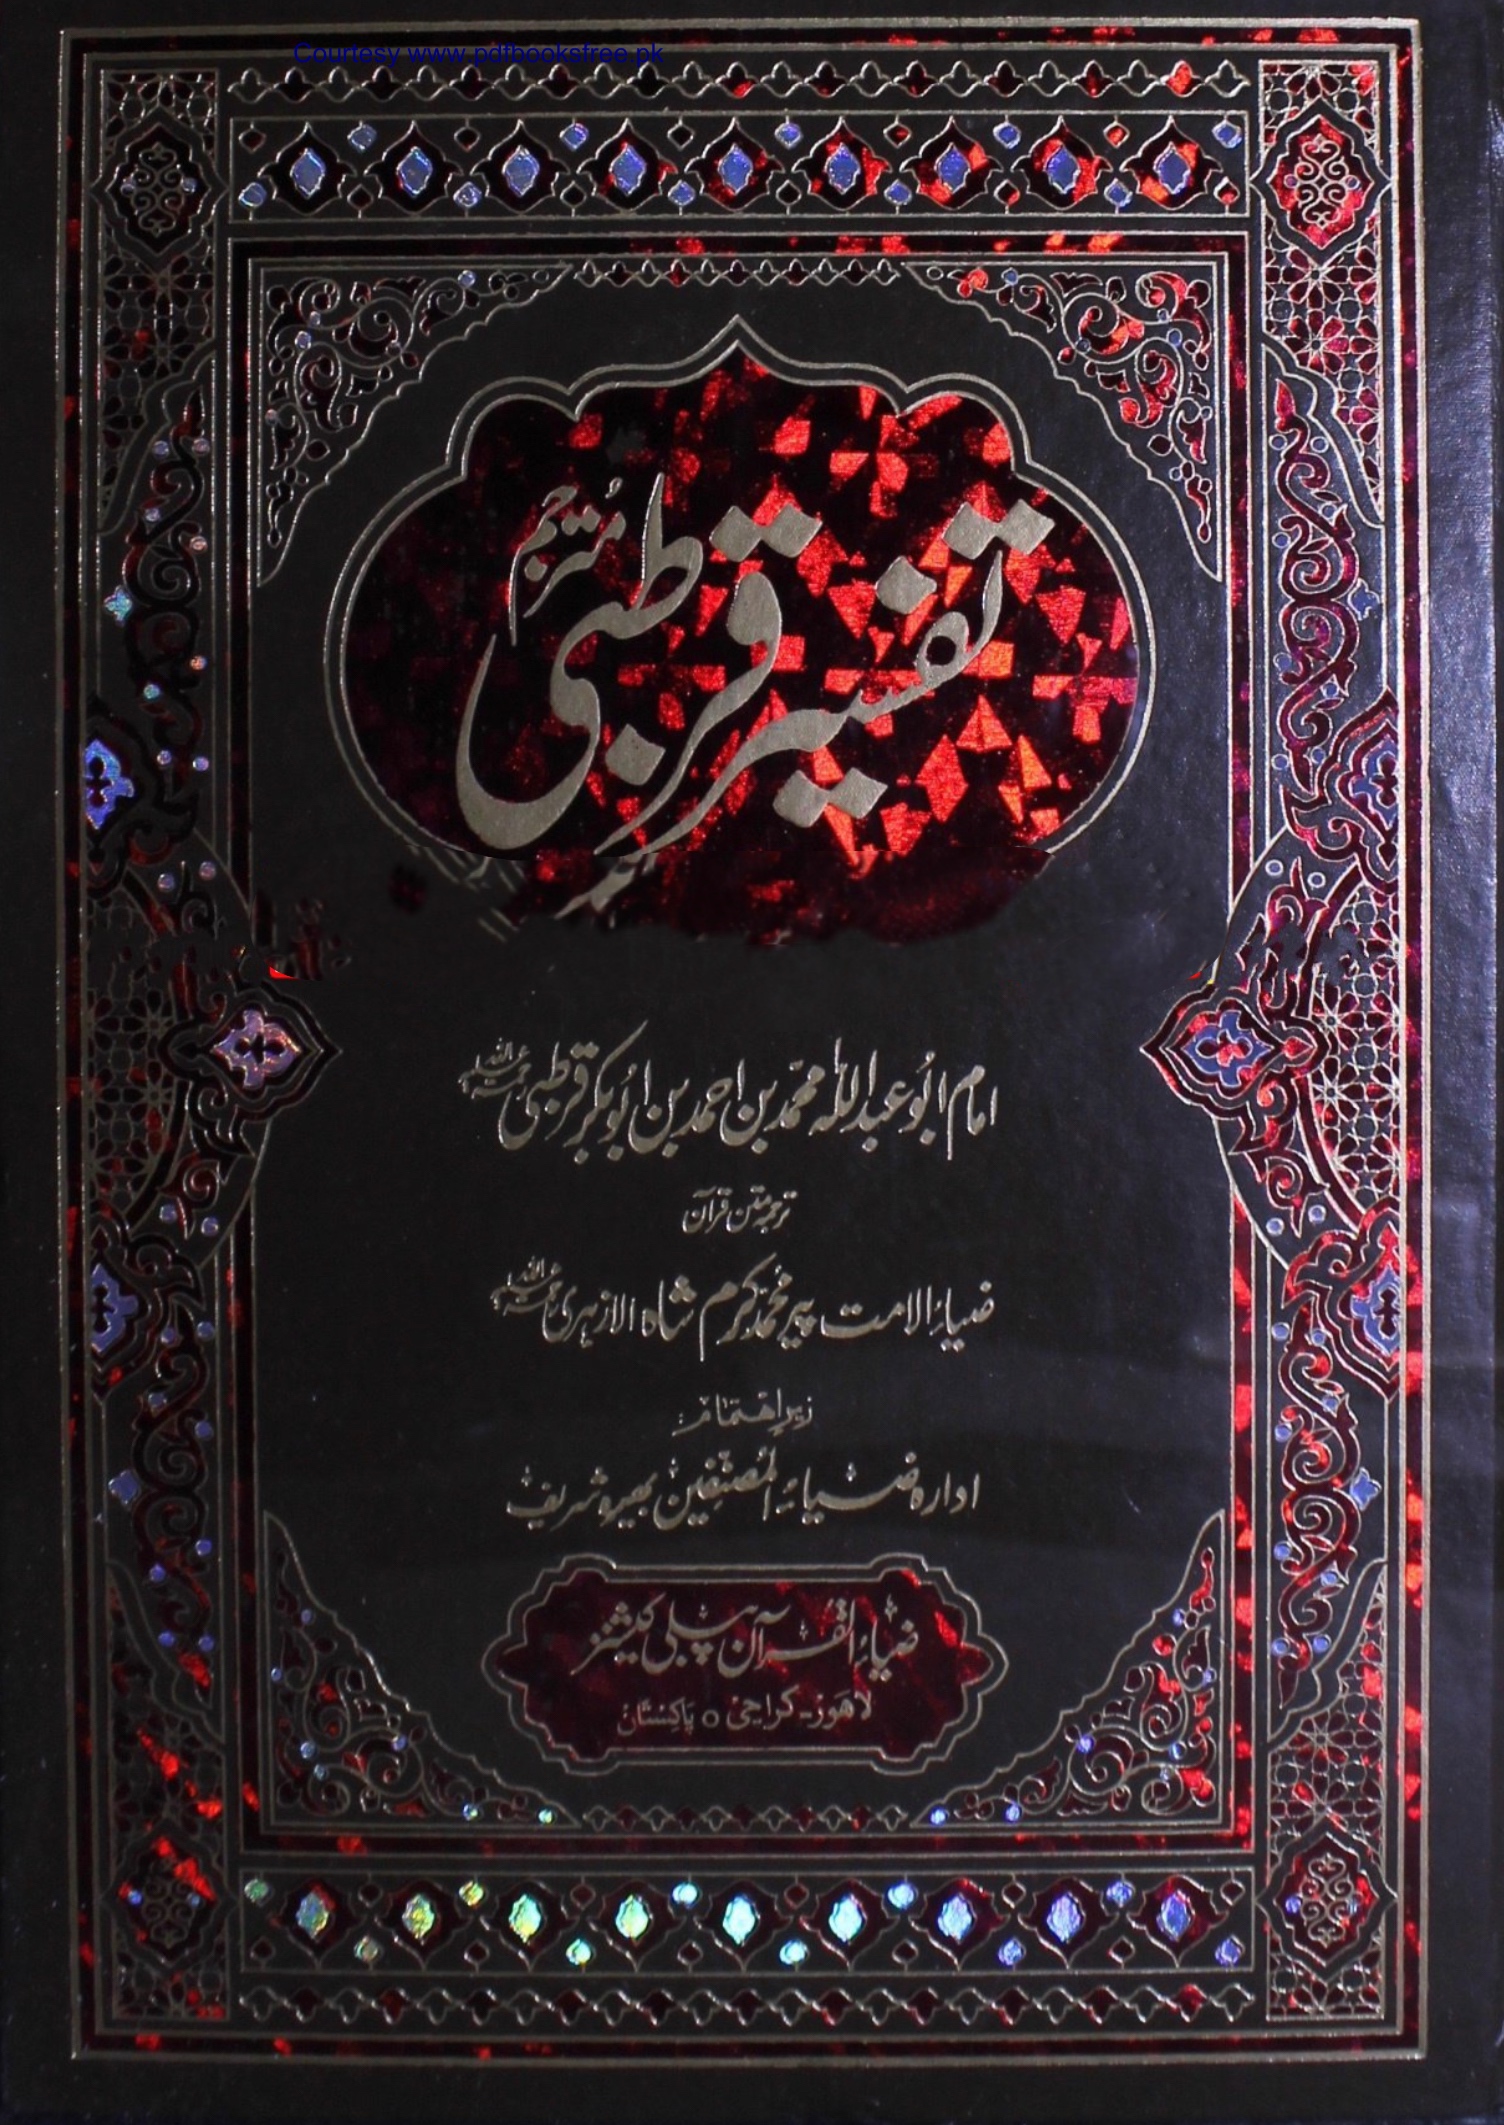 Courtesy www.pdfbooksfree.pk
تفسیر قرطبی مُترجم
امام ابُو عبداللہ محمّد بن احمد بن ابُوبکر قرطبی رحمۃ اللہ علیہ
ترجمہ متن قرآن
ضیاءُ الامت پیر محمّد کرم شاہ الازہری رحمۃ اللہ علیہ
زیرِ اہتمام
ادارہ ضیاءُ المصنفین بھیرہ شریف
ضیاءُ القرآن پبلی کیشنز
لاہور - کراچی ○ پاکستان